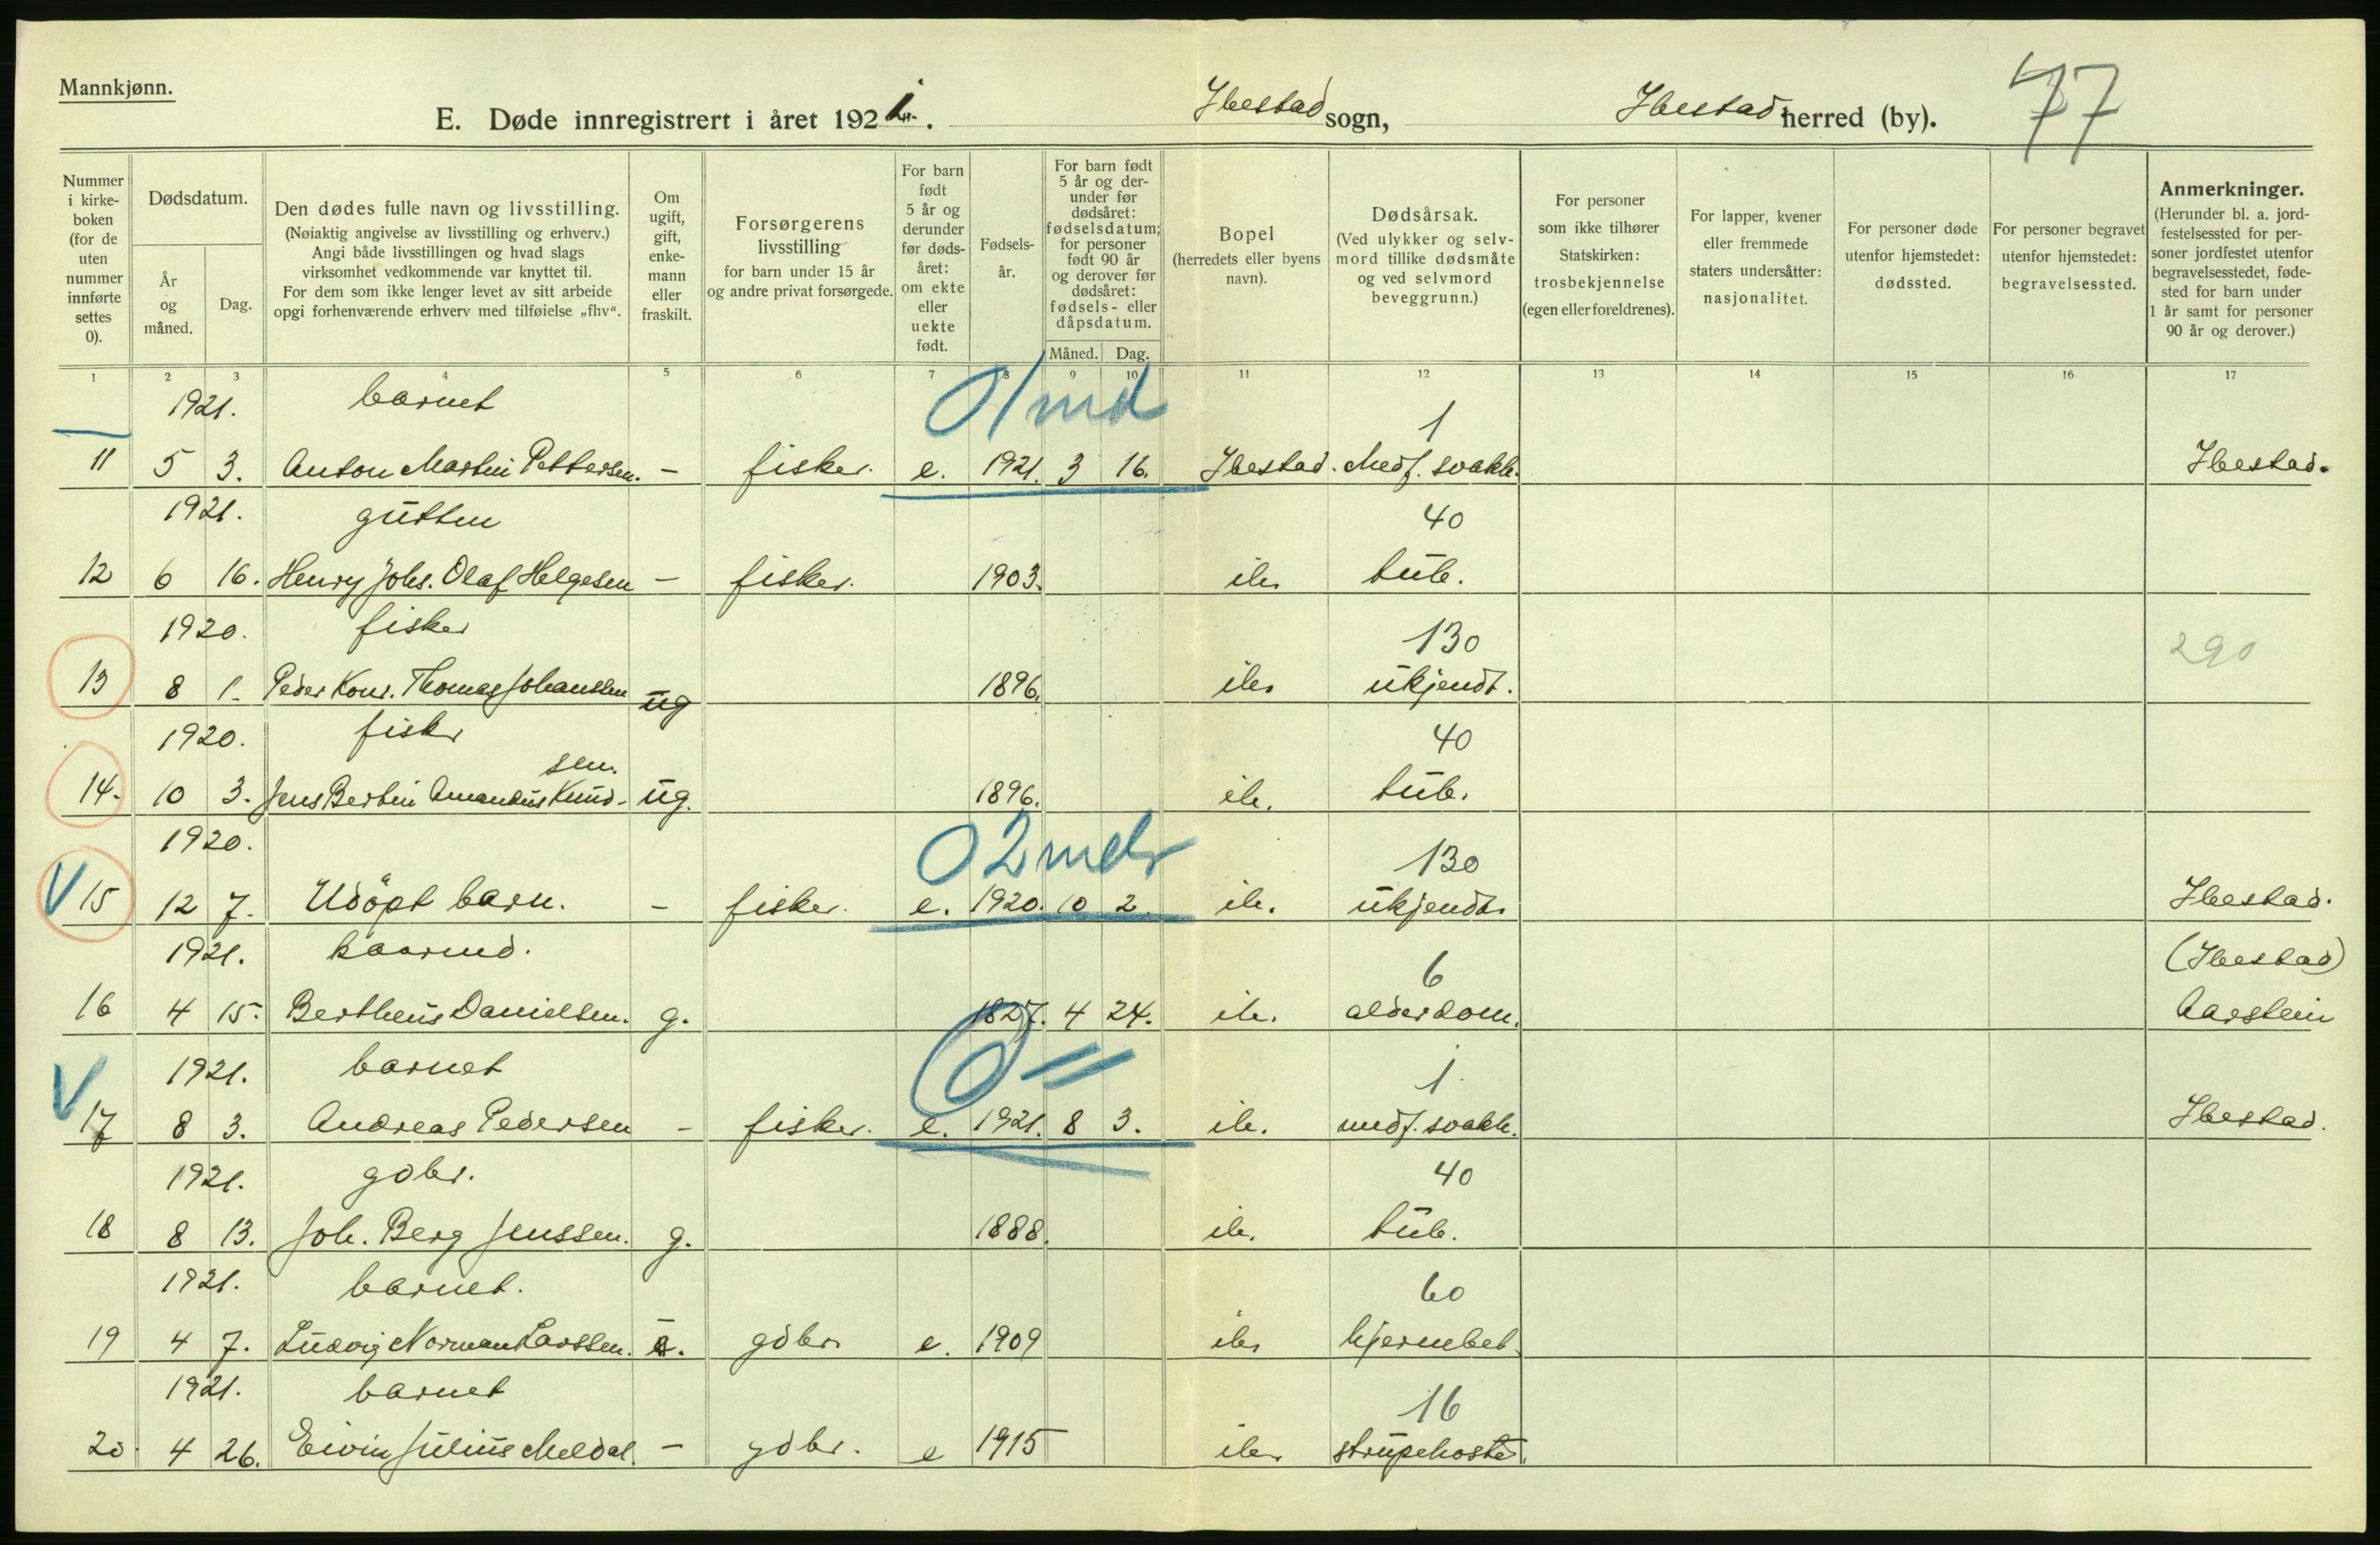 Mannkjønn.
E. Døde innregistrert i året 1921. Ibestad sogn, Ibestad herred (by). 77
Nummer i kirkeboken (for de uten nummer innførte settes 0).
Dødsdatum.
År og måned.
Dag.
Den dødes fulle navn og livsstilling.
(Nøiaktig angivelse av livsstilling og erhverv.)
Angi både livsstillingen og hvad slags
virksomhet vedkommende var knyttet til.
For dem som ikke lenger levet av sitt arbeide
opgi forhenværende erhverv med tilføielse „fhv“.
Om ugift, gift, enkemann eller fraskilt.
Forsørgerens livsstilling
for barn under 15 år
og andre privat forsørgede.
For barn født 5 år og derunder før dødsåret: om ekte eller uekte født.
Fødselsår.
For barn født 5 år og derunder før dødsåret: fødselsdatum; for personer født 90 år og derover før dødsåret: fødsels- eller dåpsdatum.
Måned. Dag.
Bopel
(herredets eller byens navn).
Dødsårsak.
(Ved ulykker og selvmord tillike dødsmåte og ved selvmord beveggrunn.)
For personer som ikke tilhører Statskirken: trosbekjennelse (egen eller foreldrenes).
For lapper, kvener eller fremmede staters undersåtter: nasjonalitet.
For personer døde utenfor hjemstedet: dødssted.
For personer begravet utenfor hjemstedet: begravelsessted.
Anmerkninger.
(Herunder bl. a. jordfestelsessted for personer jordfestet utenfor begravelsesstedet, fødested for barn under 1 år samt for personer 90 år og derover.)
1 2 3 4 5 6 7 8 9 10 11 12 13 14 15 16 17
1921. barnet 0/md 1
11 5 3. Anton Martin Pettersen. - fisker. e. 1921. 3 16. Ibestad. Medf. svakh. Ibestad.
1921. gutten 40
12 6 16. Henry Johs. Olaf Helgesen - fisker. 1903. ib. tub.
1920. fisker 130
13 8 1. Peder Konr. Thomas Johanssen ug 1896. ib. ukjendt. 290
1920. fisker 40
sen.
14. 10 3. Jens Bertin Amandus Knud- ug. 1896. ib. tub.
1920. 0 2 mdr 130
V 15 12 7. Udöpt barn. - fisker. e. 1920. 10 2. ib. ukjendt. Ibestad.
1921. kaarmd. 6 (Ibestad)
16 4 15. Bertheus Danielsen. g. 1827. 4 24. ib. alderdom. Aarstein
1921. barnet 0 = 1
V 17 8 3. Andreas Pedersen - fisker. e. 1921. 8 3. ib. medf. svakh. Ibestad.
1921. gdbr. 40
18 8 13. Joh. Berg Jenssen. g. 1888. ib. tub.
1921. barnet. 60
19 4 7. Ludvig Norman Larssen. gdbr. e. 1909 ib. hjernebet.
1921. barnet 16
20 4 26. Eivin Julius Meldal. - gdbr. e 1915 ib. strupehoste.